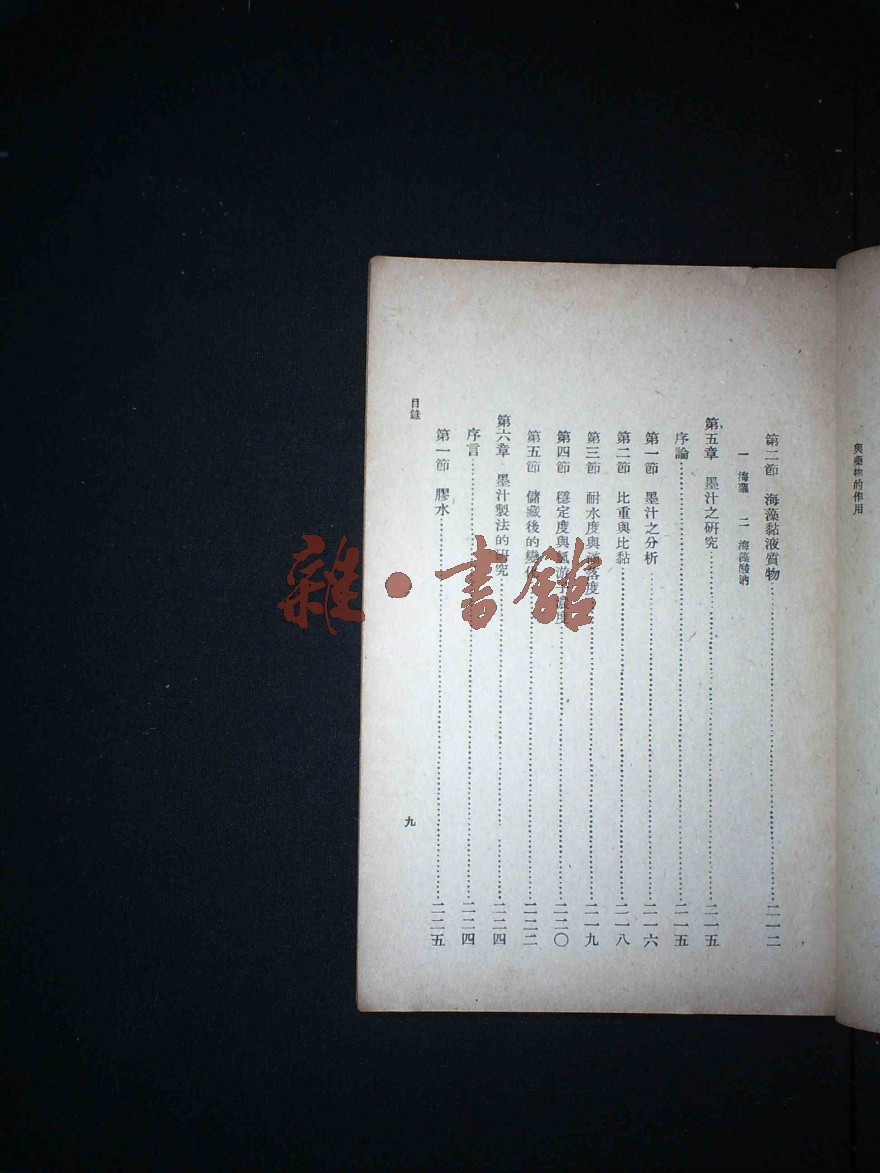 與藥材的作用
第二節 海藻黏液質物……二一二
一 海蘿 二 海藻酸鈉
第五章 墨汁之研究……二一五
序論……二一五
第一節 墨汁之分析……二一六
第二節 比重與比黏……二一八
第三節 耐水度與 落度……二一九
第四節 穩定度與氫游子濃度……二二〇
第五節 儲藏後的變化……二二二
第六章 墨汁製法的研究……二二四
序言……二二四
第一節 膠水……二二五
目錄
九
雜·書館